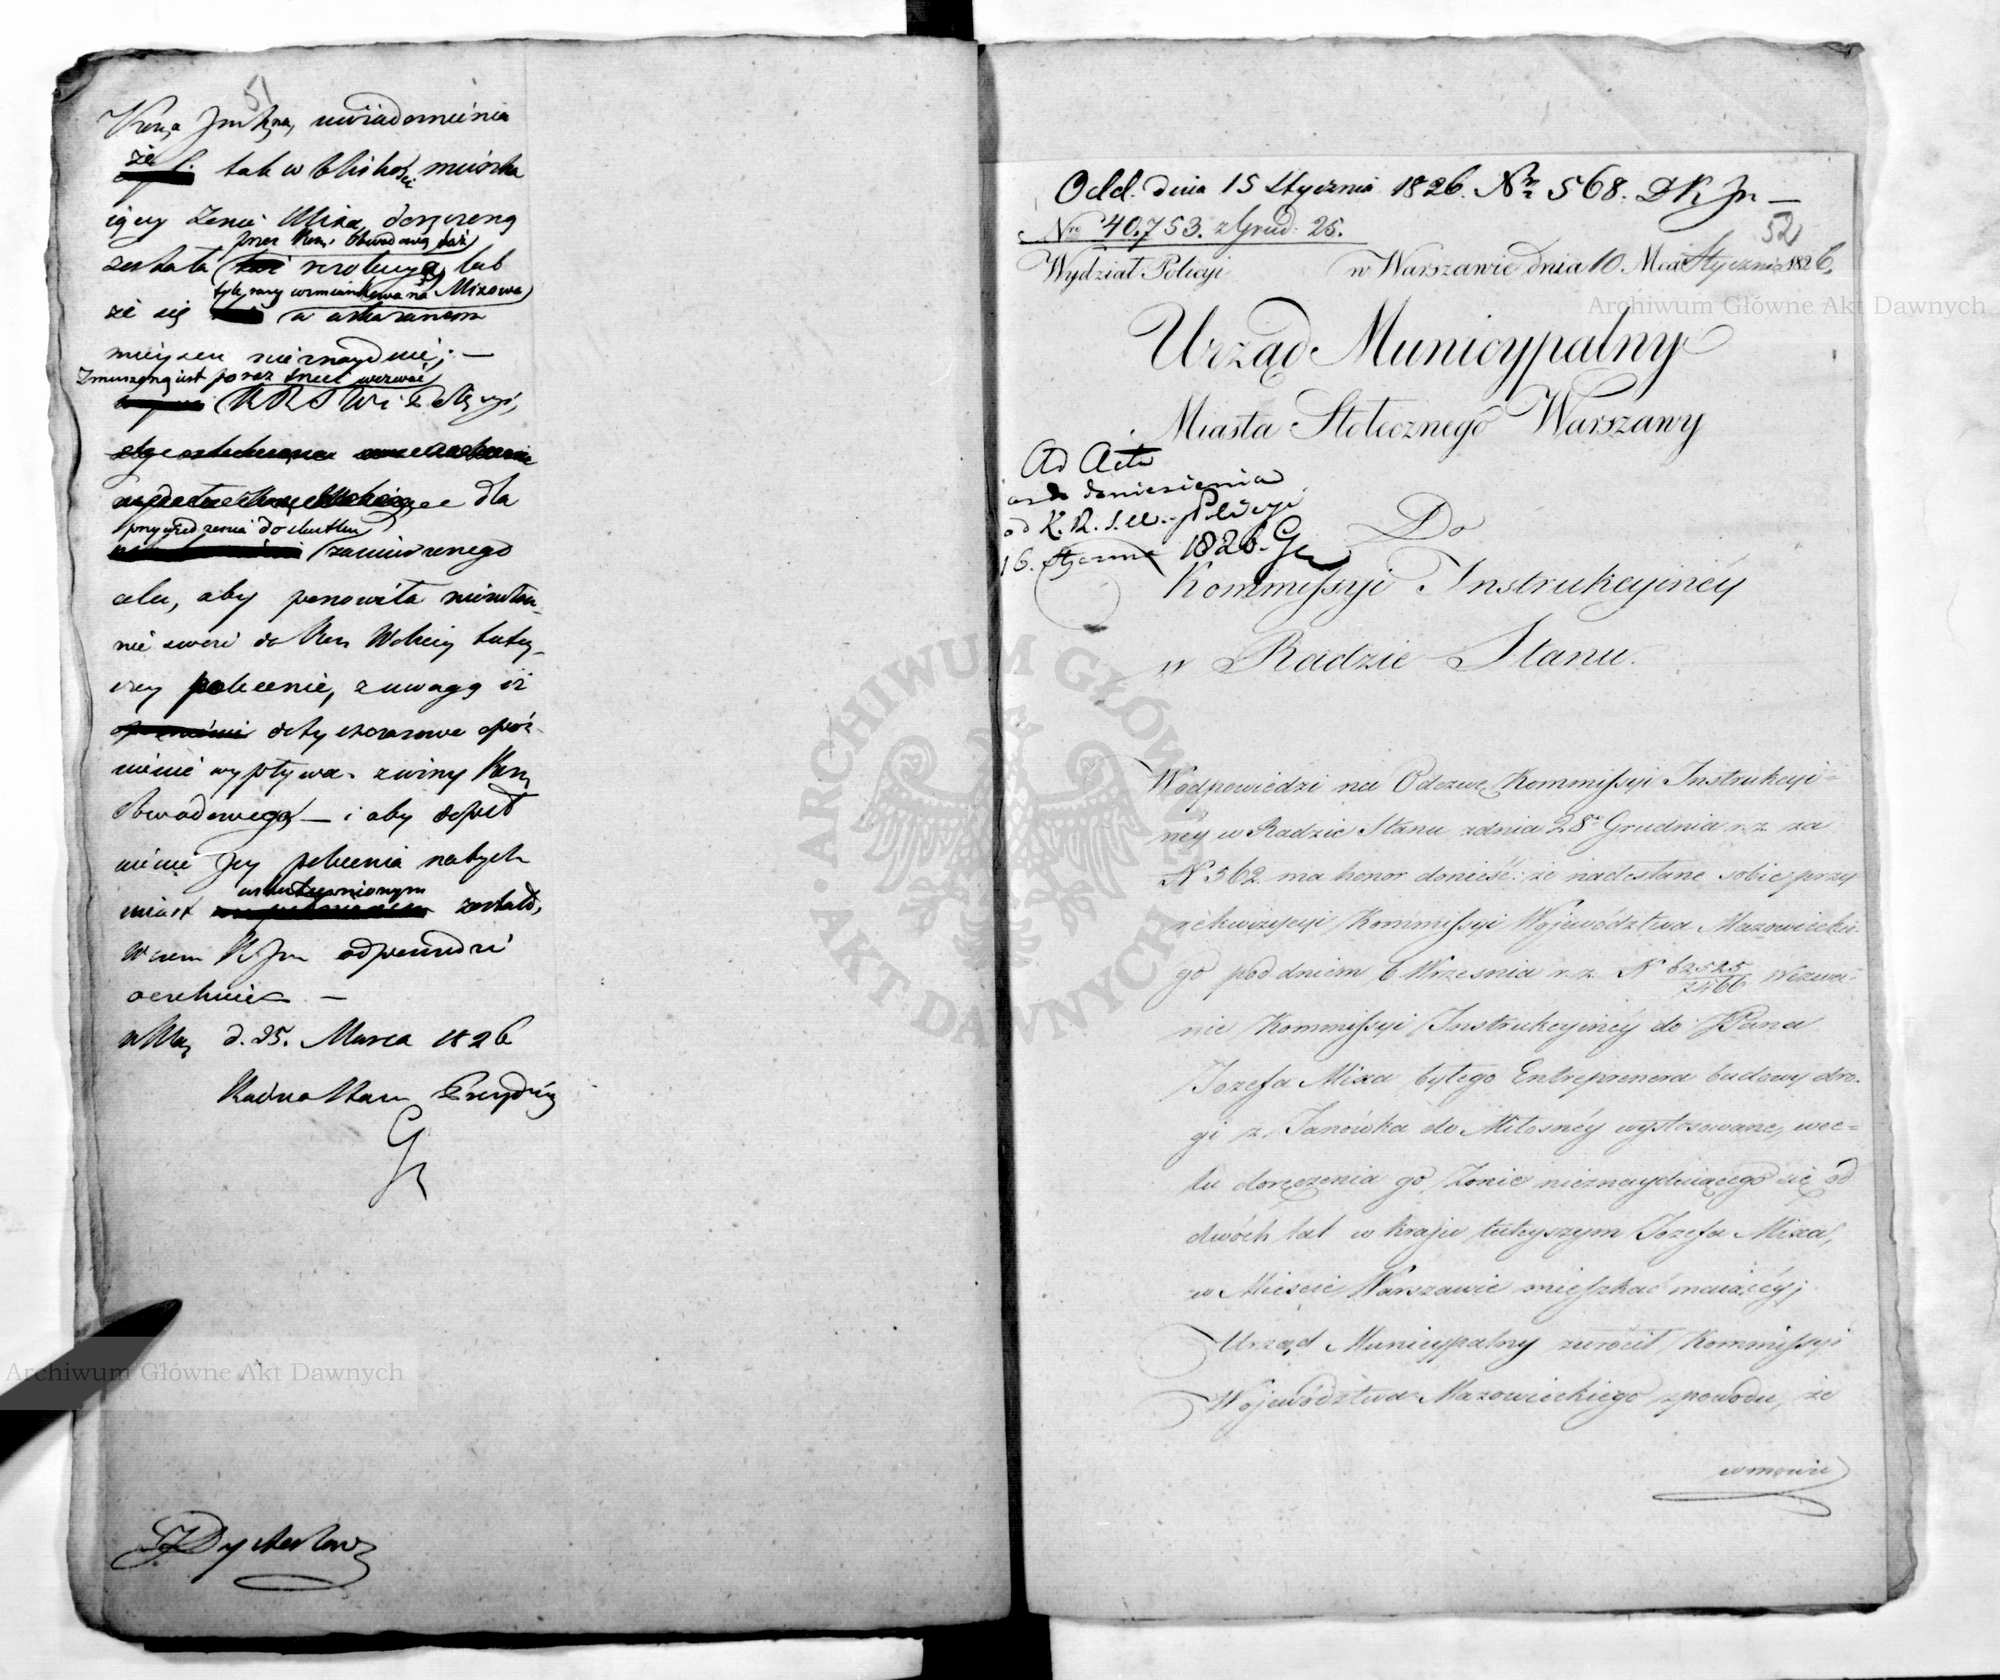 51
uwiadomienia
że tak w bliskości mieszka
iący Żonie Mixa, doręczoną
przez Kom. Obwodową bądź
została rezolucya, lub
tyle razy wzmiankowana Mixowa
że się w wskazanem
mieyscu nieznayduie; —
Zmuszoną iest poraz trzeci wezwać
KRSW i Policyi,
dla
przyspieszenia do skutku
zamierzonego
celu, aby ponowiła niezwłocz-
nie swoie do Kom Woiew tutey-
szey polecenie, z uwagą iż
dotychczasowe opóź-
nienie wypływa z winy Kom
Obwodowego — i aby dopeł
nienie Jey polecenia natych
miast uskutecznionym został,
w czem K Jn odpowiedzi
oczekuie —
w War, d. 25. Marca 1826
Radca Stanu Prezyduiący
Odd. dnia 15 Stycznia 1826. Nr 568. DKJn —
Nro 40,753. z Grud: 25.
52
Wydział Policyi w Warszawie dnia 10 Mca Stycznia 1826.
Archiwum Główne Akt Dawnych
Urząd Municypalny
Miasta Stołecznego Warszawy
Ad Acta
do doniesienia
od K. R. S. W. i Policyi
16. Stycznia 1826. G
Do
Kommissyi Instrukcyinéy
w Radzie Stanu.
ARCHIWUM GŁÓWNE AKT DAWNYCH
W odpowiedzi na Odezwę Kommissyi Instrukcyi-
néy w Radzie Stanu z dnia 28 Grudnia r. z. za
N 562 ma honor donieść: że nadesłane sobie przy
rekwizycyi Kommissyi Województwa Mazowieckie-
go pod dniem 6 Września r. z. N 62525/7466 Wezwa-
nie Kommissyi Instrukcyinéy do JPana
Jozefa Mixa byłego Entreprenera budowy dro-
gi z Janówka do Miłosnéy wystosowane, wce-
lu doręczenia go Żonie nieznayduiącego się od
dwóch lat w kraju tuteyszym Jozefa Mixa,
w Mieście Warszawie mieszkać maiącéy;
Urząd Municypalny zwrócił Kommissyi
Województwa Mazowieckiego z powodu, że
w mowie
Archiwum Główne Akt Dawnych